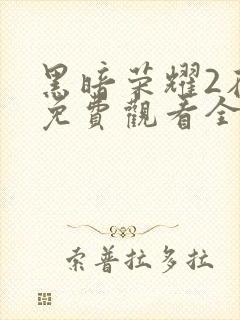 黑暗荣耀2
免費觀看全
索普拉多拉